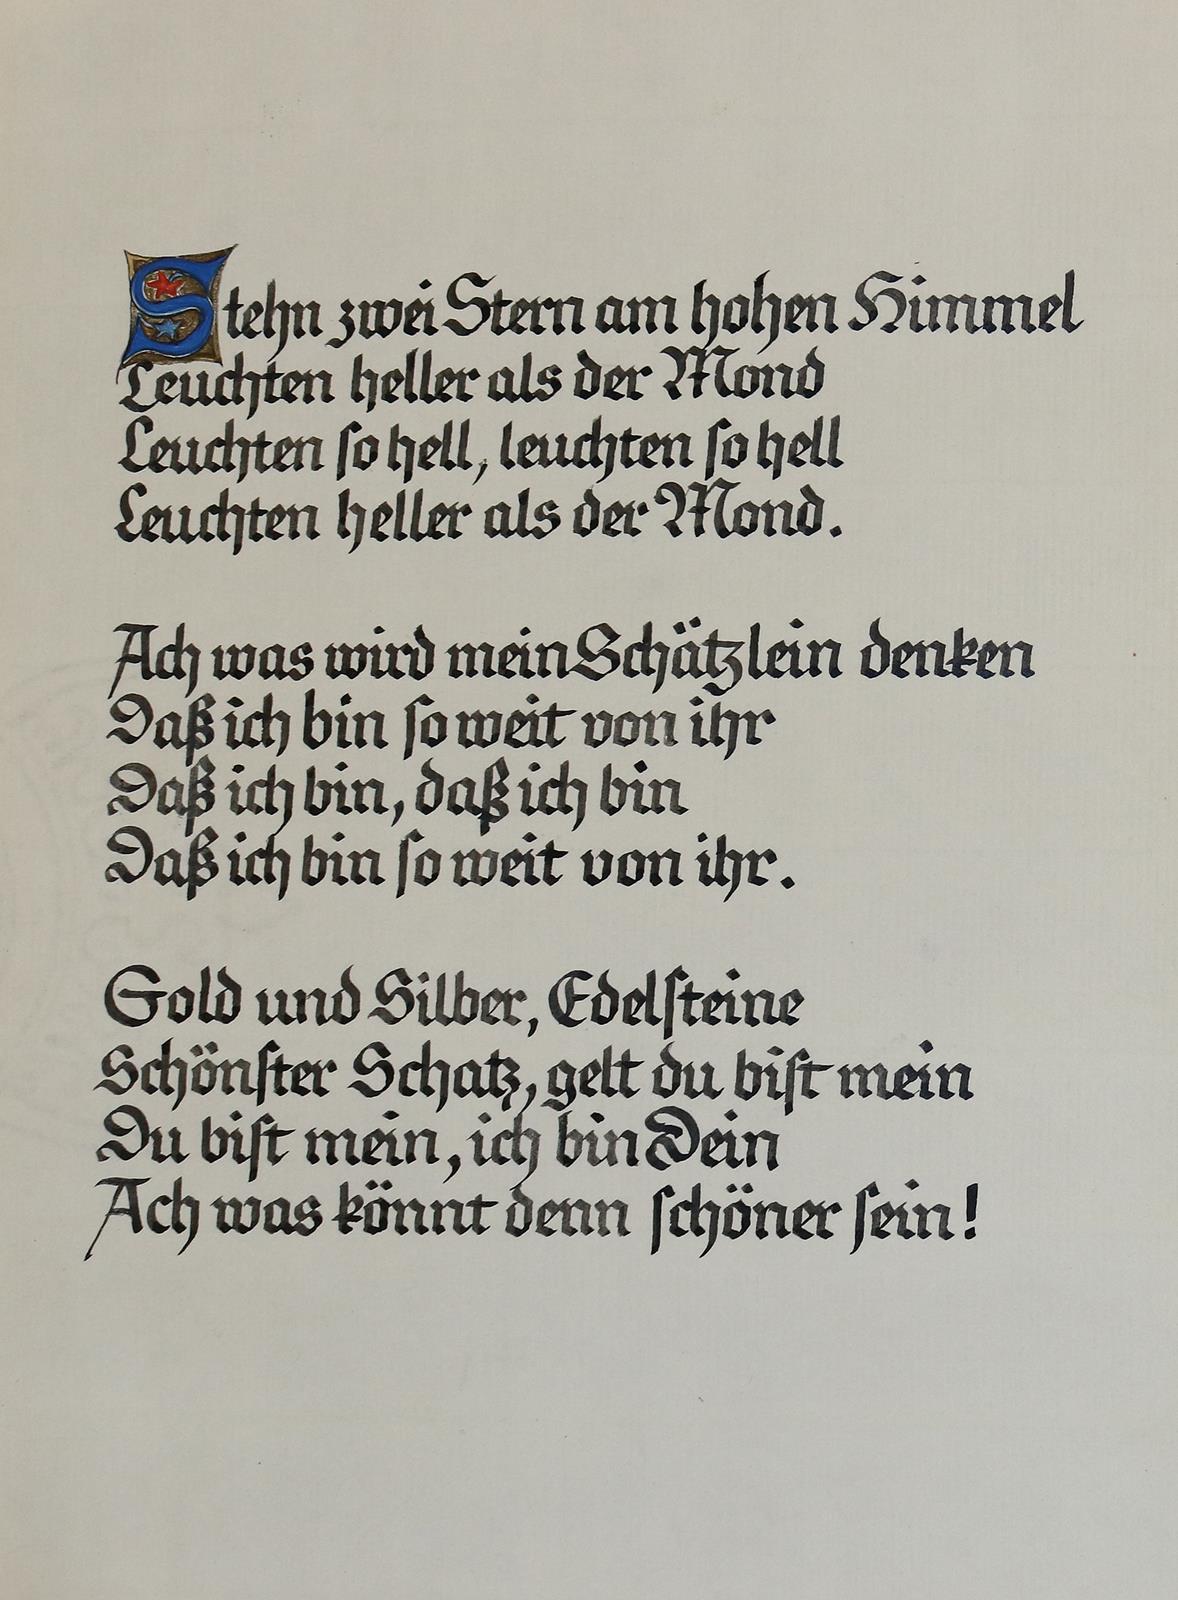 Stehn zwei Stern am hohen Himmel
Leuchten heller als der Mond
Leuchten so hell, leuchten so hell
Leuchten heller als der Mond.
Ach was wird mein Schätzlein denken
Daß ich bin so weit von ihr
Daß ich bin, daß ich bin
Daß ich bin so weit von ihr.
Gold und Silber, Edelsteine
Schönster Schatz, gelt du bist mein
Du bist mein, ich bin Dein
Ach was könnt denn schöner sein!